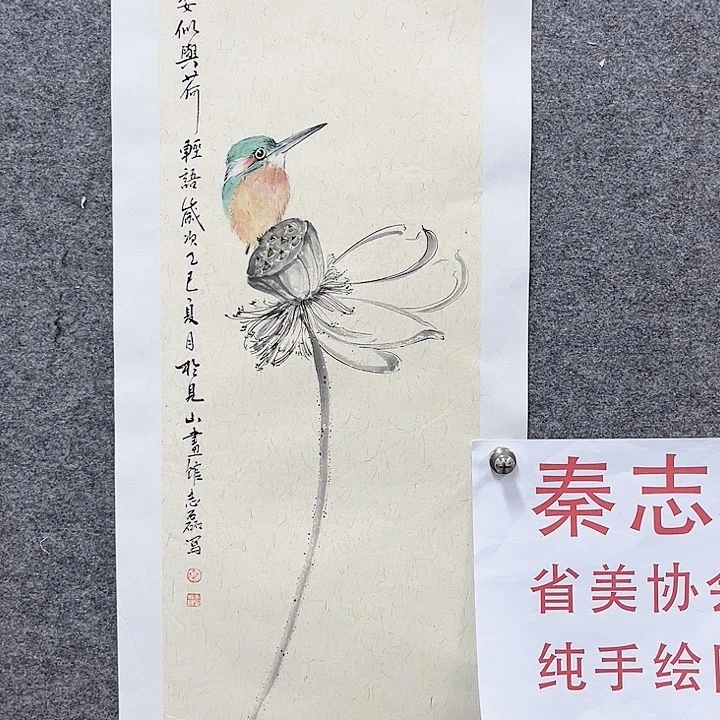 似與荷輕語歲次乙巳夏月於見山畫館志磊寫
秦志
省美协会
纯手绘